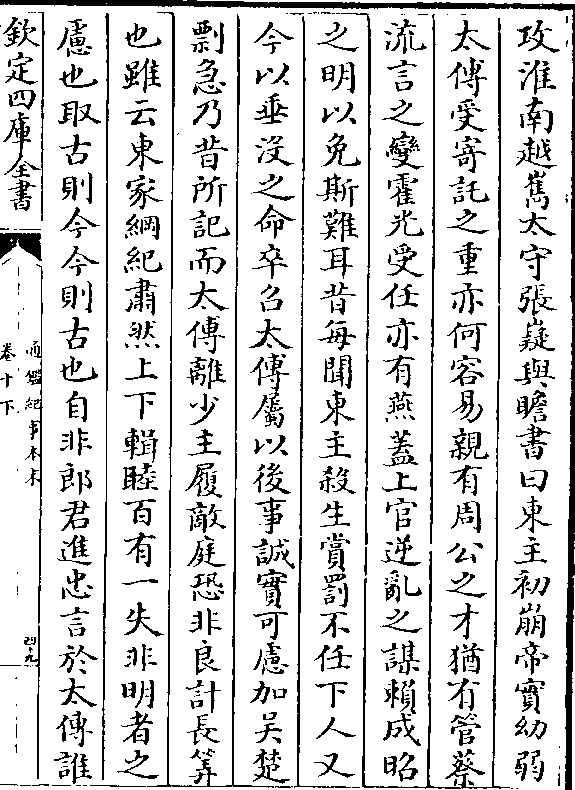 攻淮南越嶲太守張嶷與瞻書曰東主初崩帝實幼弱
太傅受寄託之重亦何容易親有周公之才猶有管蔡
流言之變霍光受任亦有燕蓋上官逆亂之謀賴成昭
之明以免斯難耳昔每聞東主殺生賞罰不任下人又
今以垂沒之命卒召太傅屬以後事誠實可慮加吴楚
剽急乃昔所記而太傅離少主履敵庭恐非良計長筭
也雖云東家綱紀肅然上下輯睦百有一失非明者之
慮也取古則今今則古也自非郎君進忠言於太傅誰
欽定四庫全書
通鑑紀事本末
卷十下
四十九